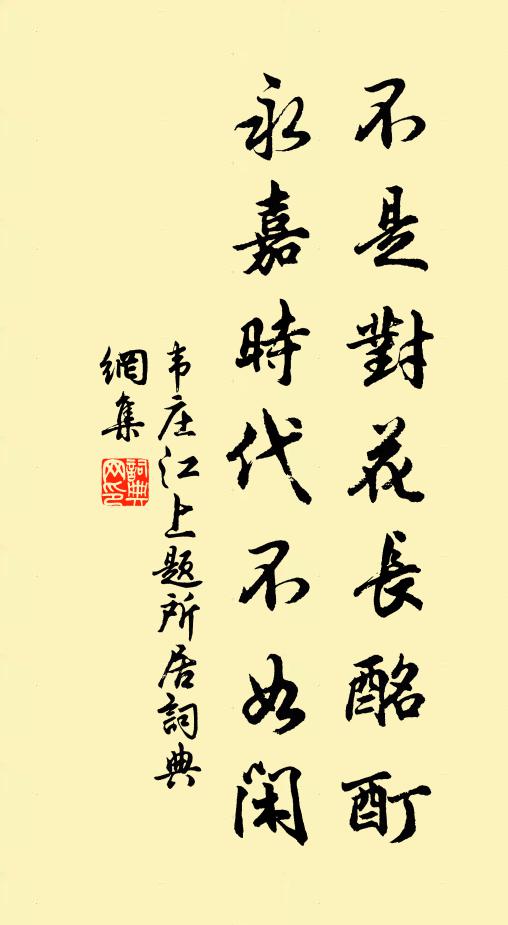 不是對花長酩酊
永嘉時代不如閑
韦庄江上题所居詞典
網集
詞典
网印